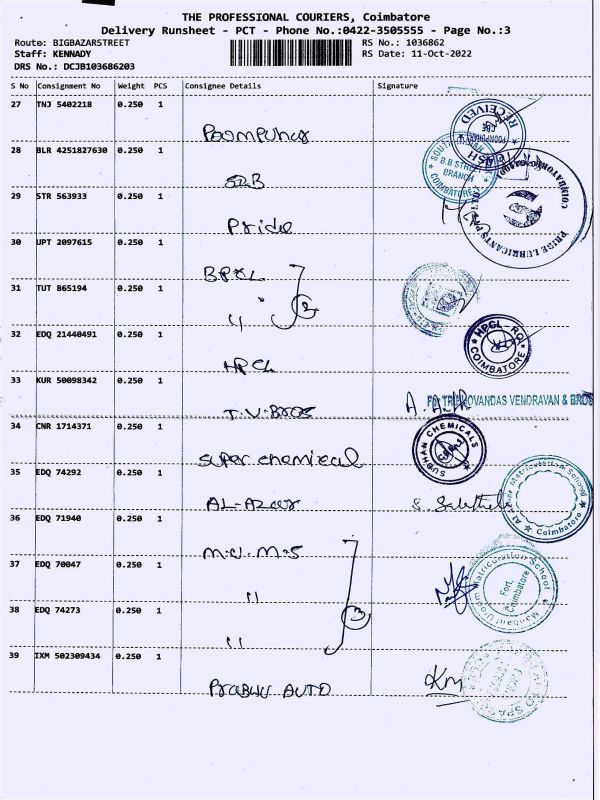 THE PROFESSIONAL COURIERS, Coimbatore
Delivery Runsheet - PCT - Phone No.:0422-3505555 - Page No.:3
Route: BIGBAZARSTREET RS No.: 1036862
Staff: KENNADY RS Date: 11-Oct-2022
DRS No.: DCJB103686203
S No Consignment No Weight PCS Consignee Details Signature
27 TNJ 5402218 0.250 1
Poompuhar
RECEIVED
28 BLR 4251827630 0.250 1
B.B STREET
BRANCH
COIMBATORE
SIB
29 STR 563933 0.250 1
Pride
PRIDE LUBRICANTS
30 UPT 2097615 0.250 1
BPCL
31 TUT 865194 0.250 1
" 2
32 EDQ 21440491 0.250 1
HPCL
HPCL-RO
COIMBATORE
33 KUR 50098342 0.250 1
T.V.BROS
TRIBHOVANDAS VENDRAVAN & BROS
34 CNR 1714371 0.250 1
super chemical
SUBHAN CHEMICALS
35 EDQ 74292 0.250 1
AL-Azar
Matriculation School
Coimbatore
36 EDQ 71940 0.250 1
M.U.M.S
37 EDQ 70047 0.250 1
"
Matriculation School
Fort,
Coimbatore
38 EDQ 74273 0.250 1
" 3
39 IXM 502309434 0.250 1
Prabhu AUTO
Km